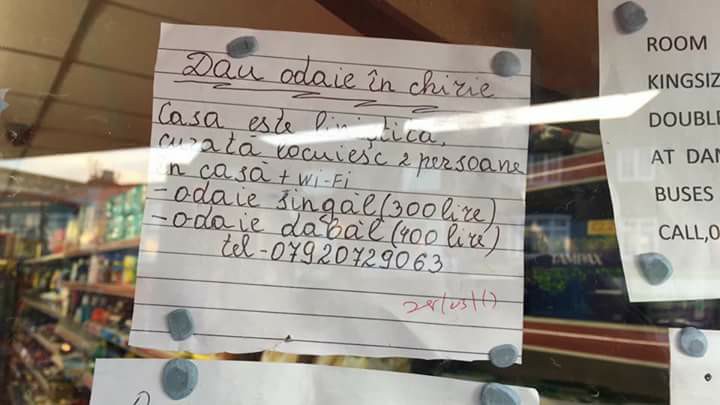 Dau odaie în chirie
Casa este liniștită,
curată locuiesc 2 persoane
în casă + Wi-Fi
-odaie singăl (300 lire)
-odaie dabăl (400 lire)
tel-07920729063
ROOM
KINGSIZ
DOUBLE
AT DAN
BUSES
CALL,0
TAMPAX